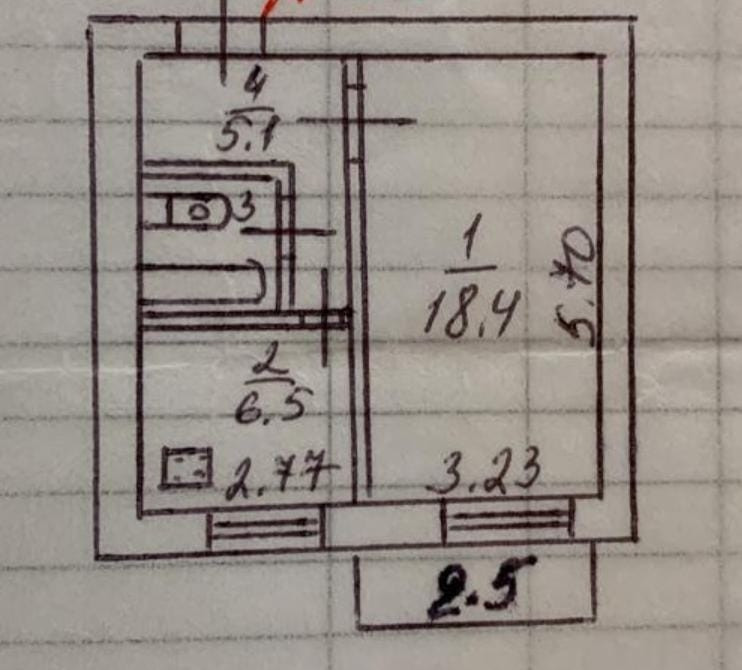 4
5.1
3
1
18.4
5.70
2
6.5
2.77
3.23
2.5